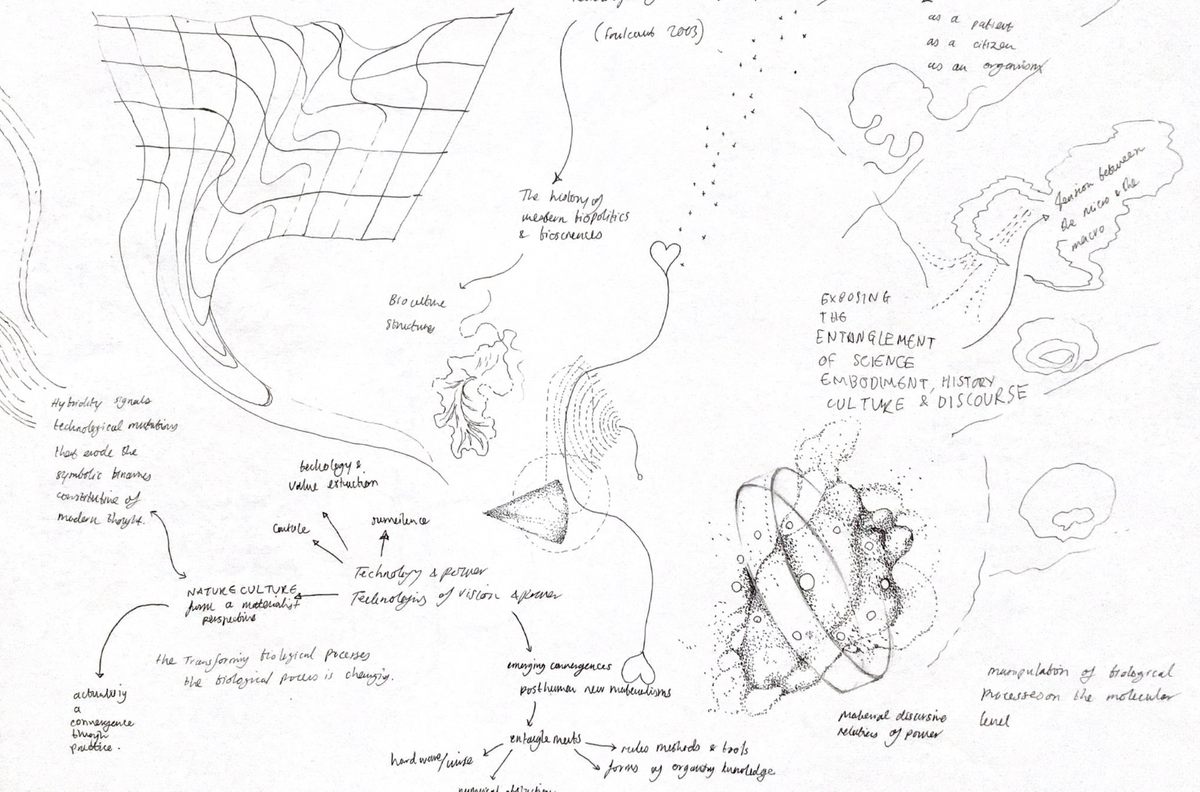 (Foulcaut 2003)
as a patient
as a citizen
as an organism
The history of
western biopolitics
& biosciences
Tension between
the micro & the
macro
Bioculture
structures
EXPOSING
THE
ENTANGLEMENT
OF SCIENCE
EMBODIMENT, HISTORY
CULTURE & DISCOURSE
Hybridity signals
technological mutations
that erode the
symbolic binaries
constitutive of
modern thought.
technology &
value extraction
surveilence
Technology & power
Technologies of vision & power
NATURECULTURE
from a materialist
perspective
the Transforming biological processes
the biological process is changing.
actuality
a
convergence
though
practice.
emerging convergences
posthuman new materialisms
entanglements
hardware/
rules methods & tools
forms of organising knowledge
Material discursive
relations of power
manipulation of biological
processes on the molecular
level